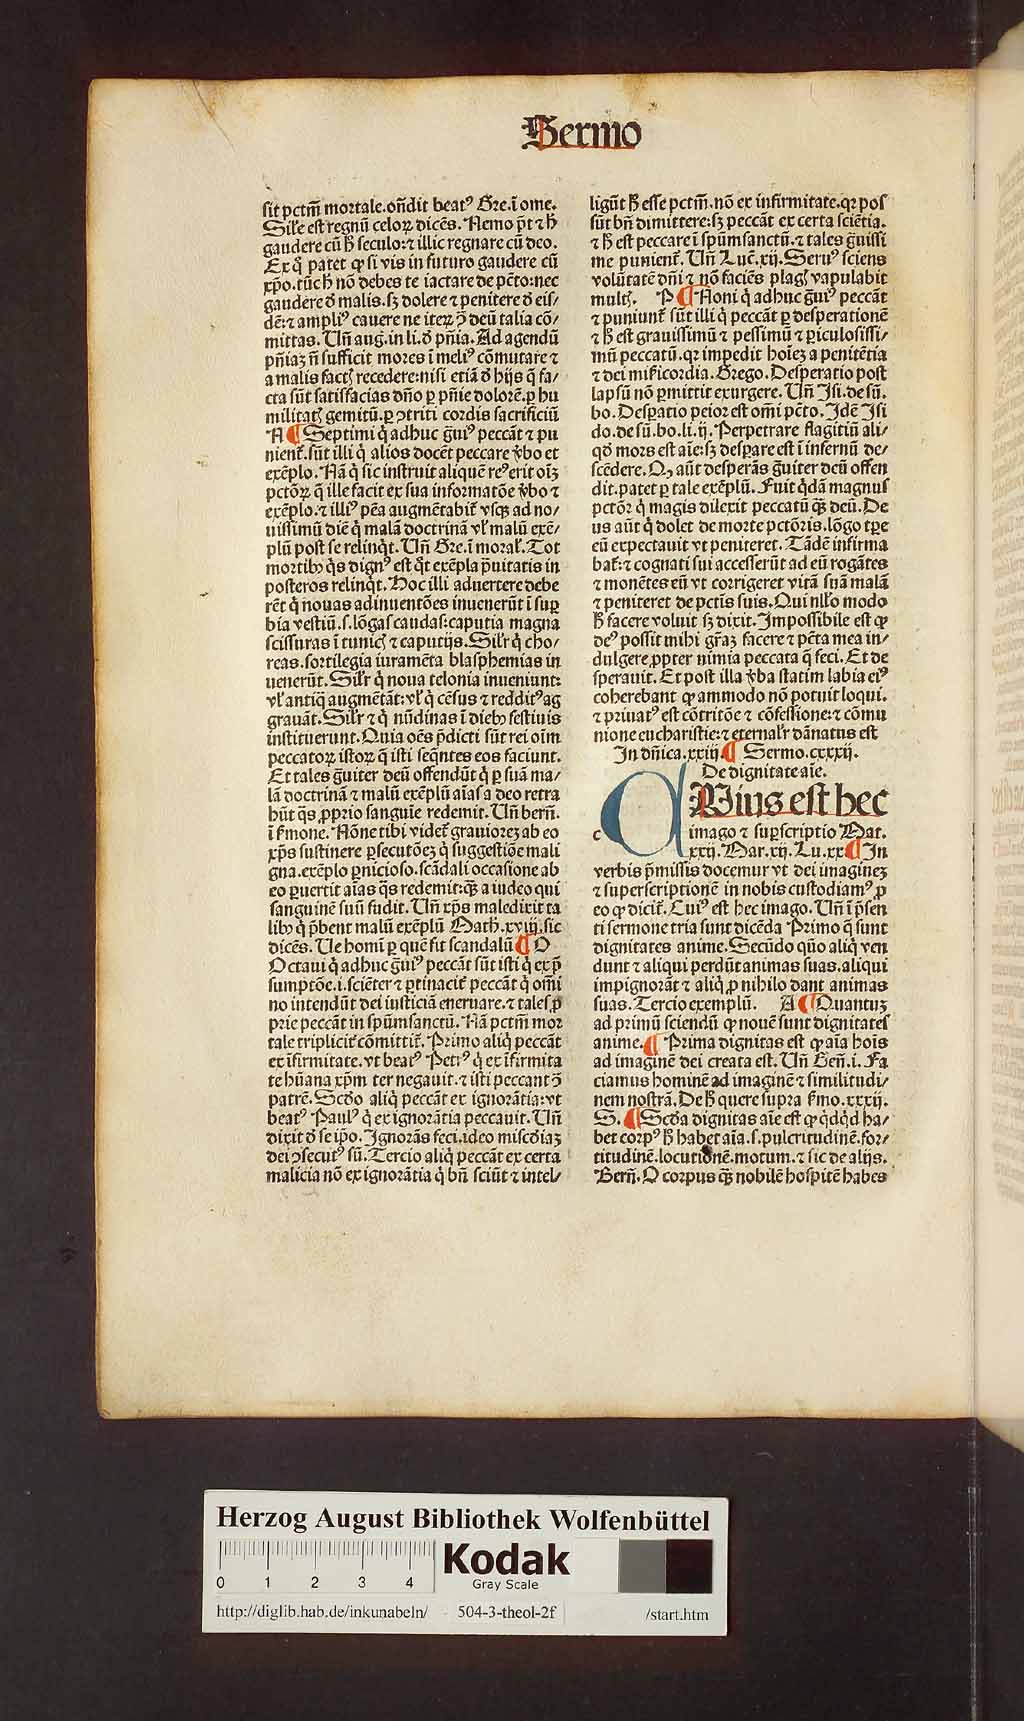 Sermo
sit pctm̄ mortale.on̄dit beatꝰ Gre.ī ome.
Sil'e est regnū celoꝝ dicēs. Nemo p̄t ⁊ h̄
gaudere cū h̄ seculo:⁊ illic regnare cū deo.
Ex q̊ patet ꝙ si vis in futuro gaudere cū
xp̄o.tūc h̄ nō debes te iactare de pctō:nec
gaudere đ malis.sꝫ dolere ⁊ penitere đ eis-
dē:⁊ ampliꝰ cauere ne iteꝝ ꝯ̄ deū talia cō-
mittas. Vn̄ aug.in li.đ pn̄ia. Ad agendū
pn̄iaꝫ n̄ sufficit mores ī meliꝰ cōmutare ⁊
a malis factꝭ recedere:nisi etiā đ hijs q̄ fa-
cta sūt satisfacias dn̄o ꝑ pn̄ie dolorē.ꝑ hu
militatꝭ gemitū.ꝑ ꝯtriti cordis sacrificiū
N Septimi q̇ adhuc g̈uiꝰ peccāt ⁊ pu
nient̄.sūt illi q̇ alios docēt peccare v̇bo et
exēplo. Nā q̇ sic instruit aliquē reꝰerit oīꝫ
pctōꝝ q̄ ille facit ex sua informatōe v̇bo ⁊
exēplo.⁊ illiꝰ pēa augmētabit̄ vsqꝫ ad no-
uissimū diē q̇ malā doctrinā vł malū exē-
plū post se relinq̇t. Vn̄ Gre.ī moral'. Tot
mortibꝰ q̇s dignꝰ est q̇t exēpla p̄uitatis in
posteros relinq̇t. Hoc illi aduertere debe
rēt q̇ nouas adinuentōes inuenerūt ī suꝑ
bia vestiū.s.lōgas caudas:caputia magna
scissuras ī tunicꝭ ⁊ caputijs. Sil'r q̇ cho-
reas.sortilegia iuramēta blasphemias in
uenerūt. Sil'r q̇ noua telonia inueniunt:
vł antiq̄ augmētāt:vł q̇ cēsus ⁊ redditꝰ ag
grauāt. Sil'r ⁊ q̇ nūdinas ī diebꝰ festiuis
instituerunt. Quia oēs p̄dicti sūt rei oīm
peccatoꝝ istoꝝ q̄ isti seq̄ntes eos faciunt.
Et tales g̈uiter deū offendūt q̇ ꝑ suā ma-
lā doctrinā ⁊ malū exēplū aīas a deo retra
hūt q̄s ꝓprio sanguīe redemit. Vn̄ bern̄.
ī ẜmone. Nōne tibi videt̄ grauioreꝫ ab eo
xp̄s sustinere ꝑsecutōeꝫ q̇ suggestiōe mali
gna.exēplo ꝑnicioso.scādali occasione ab
eo ꝑuertit aīas q̄s redemit:qꝫ a iudeo qui
sanguinē suū fudit. Vn̄ xp̄s maledixit ta
libꝰ q̇ p̄bent malū exēplū Math̄.xviij.sic
dicēs. Ve homi ꝑ quē fit scandalū O
Octaui q̇ adhuc g̈uiꝰ peccāt sūt isti q̇ ex p̄
sumptōe.i.sciēter ⁊ ꝑtinacit̄ peccāt q̇ om̄i
no intendūt dei iusticiā eneruare.⁊ tales ꝓ
prie peccāt in spūmsanctū. Nā pctm̄ mor
tale triplicit̄ cōmittit̄. Primo aliq̇ peccāt
ex īfirmitate.vt beatꝰ Petrꝰ q̇ ex īfirmita
te hūana xp̄m ter negauit.⁊ isti peccant ꝯ̄
patrē. Scđo aliq̇ peccāt ex ignorātia:vt
beatꝰ Paulꝰ q̇ ex ignorātia peccauit. Vn̄
dixit đ se ip̄o. Ignorās feci.ideo misc̄diaꝫ
dei ꝯsecutꝰ sū. Tercio aliq̇ peccāt ex certa
malicia nō ex ignorātia q̇ bn̄ sciūt ⁊ intel-
ligūt h̄ esse pctm̄.nō ex infirmitate.qꝛ pos
sūt bn̄ dimittere:sꝫ peccāt ex certa sciētia.
⁊ h̄ est peccare ī spūmsanctū.⁊ tales g̈uissi
me punient̄. Vn̄ Luc̄.xij. Seruꝰ sciens
volūtatē dn̄i ⁊ nō faciēs plagꝭ vapulabit
multꝭ. P Noni q̇ adhuc g̈uiꝰ peccāt
⁊ puniunt̄ sūt illi q̇ peccāt ꝑ desperationē
⁊ h̄ est grauissimū ⁊ pessimū ⁊ ꝑiculosissi-
mū peccatū.qꝛ impedit hoīeꝫ a penitētia
⁊ dei mīficordia. Grego. Desperatio post
lapsū nō ꝑmittit exurgere. Vn̄ Isi.de sū.
bo. Desꝑatio peior est om̄i pctō. Idē Isi
do.de sū.bo.li.ij. Perpetrare flagitiū ali-
qđ mors est aīe:sꝫ desꝑare est ī infernū de-
scēdere. Qꝫ aūt desperās g̈uiter deū offen
dit.patet ꝑ tale exēplū. Fuit q̇dā magnus
pctōr q̇ magis dilexit peccatū qꝫ deū. De
us aūt q̇ dolet de morte pctōris.lōgo tꝑe
eū expectauit vt peniteret. Tādē infirma
bat̄:⁊ cognati sui accesserūt ad eū rogātes
⁊ monētes eū vt corrigeret vitā suā malā
⁊ peniteret de pctīs suis. Qui nllo modo
h̄ facere voluit sꝫ dixit. Impossibile est ꝙ
deꝰ possit mihi gr̄aꝫ facere ⁊ pctā mea in-
dulgere ꝓpter nimia peccata q̄ feci. Et de
sperauit. Et post illa v̇ba statim labia eiꝰ
coherebant ꝙ ammodo nō potuit loqui.
⁊ priuatꝰ est cōtritōe ⁊ cōfessione:⁊ cōmu
nione eucharistie:⁊ eternal'r dānatus est
In dn̄ica.xxiij. Sermo.cxxxij.
De dignitate aīe.
CVius est hec
imago ⁊ suꝑscriptio Mat.
xxij. Mar.xij. Lu.xx In
verbis p̄missis docemur vt dei imagineꝫ
⁊ superscriptionē in nobis custodiamꝰ ꝓ
eo ꝙ dicit̄. Cuiꝰ est hec imago. Vn̄ ī p̄sen
ti sermone tria sunt dicēda Primo q̄ sunt
dignitates anime. Secūdo quō aliq̇ ven
dunt ⁊ aliqui perdūt animas suas.aliqui
impignorāt ⁊ aliq̇ ꝓ nihilo dant animas
suas. Tercio exemplū. A Quantuꝫ
ad primū sciendū ꝙ nouē sunt dignitates
anime. Prima dignitas est ꝙ aīa hoīs
ad imaginē dei creata est. Vn̄ Gen̄.i. Fa
ciamus hominē ad imaginē ⁊ similitudi-
nem nostrā. De h̄ quere supra ẜmo.xxxij.
S. Scđa dignitas aīe est ꝙ q̇dq̇d ha-
bet corpꝰ h̄ habet aīa.s.pulcritudinē.for-
titudinē.locutionē.motum.⁊ sic de alijs.
Bern̄. O corpus qꝫ nobilē hospitē habes
c
Herzog August Bibliothek Wolfenbüttel
0 1 2 3 4
Kodak
Gray Scale
http://diglib.hab.de/inkunabeln/ 504-3-theol-2f /start.htm